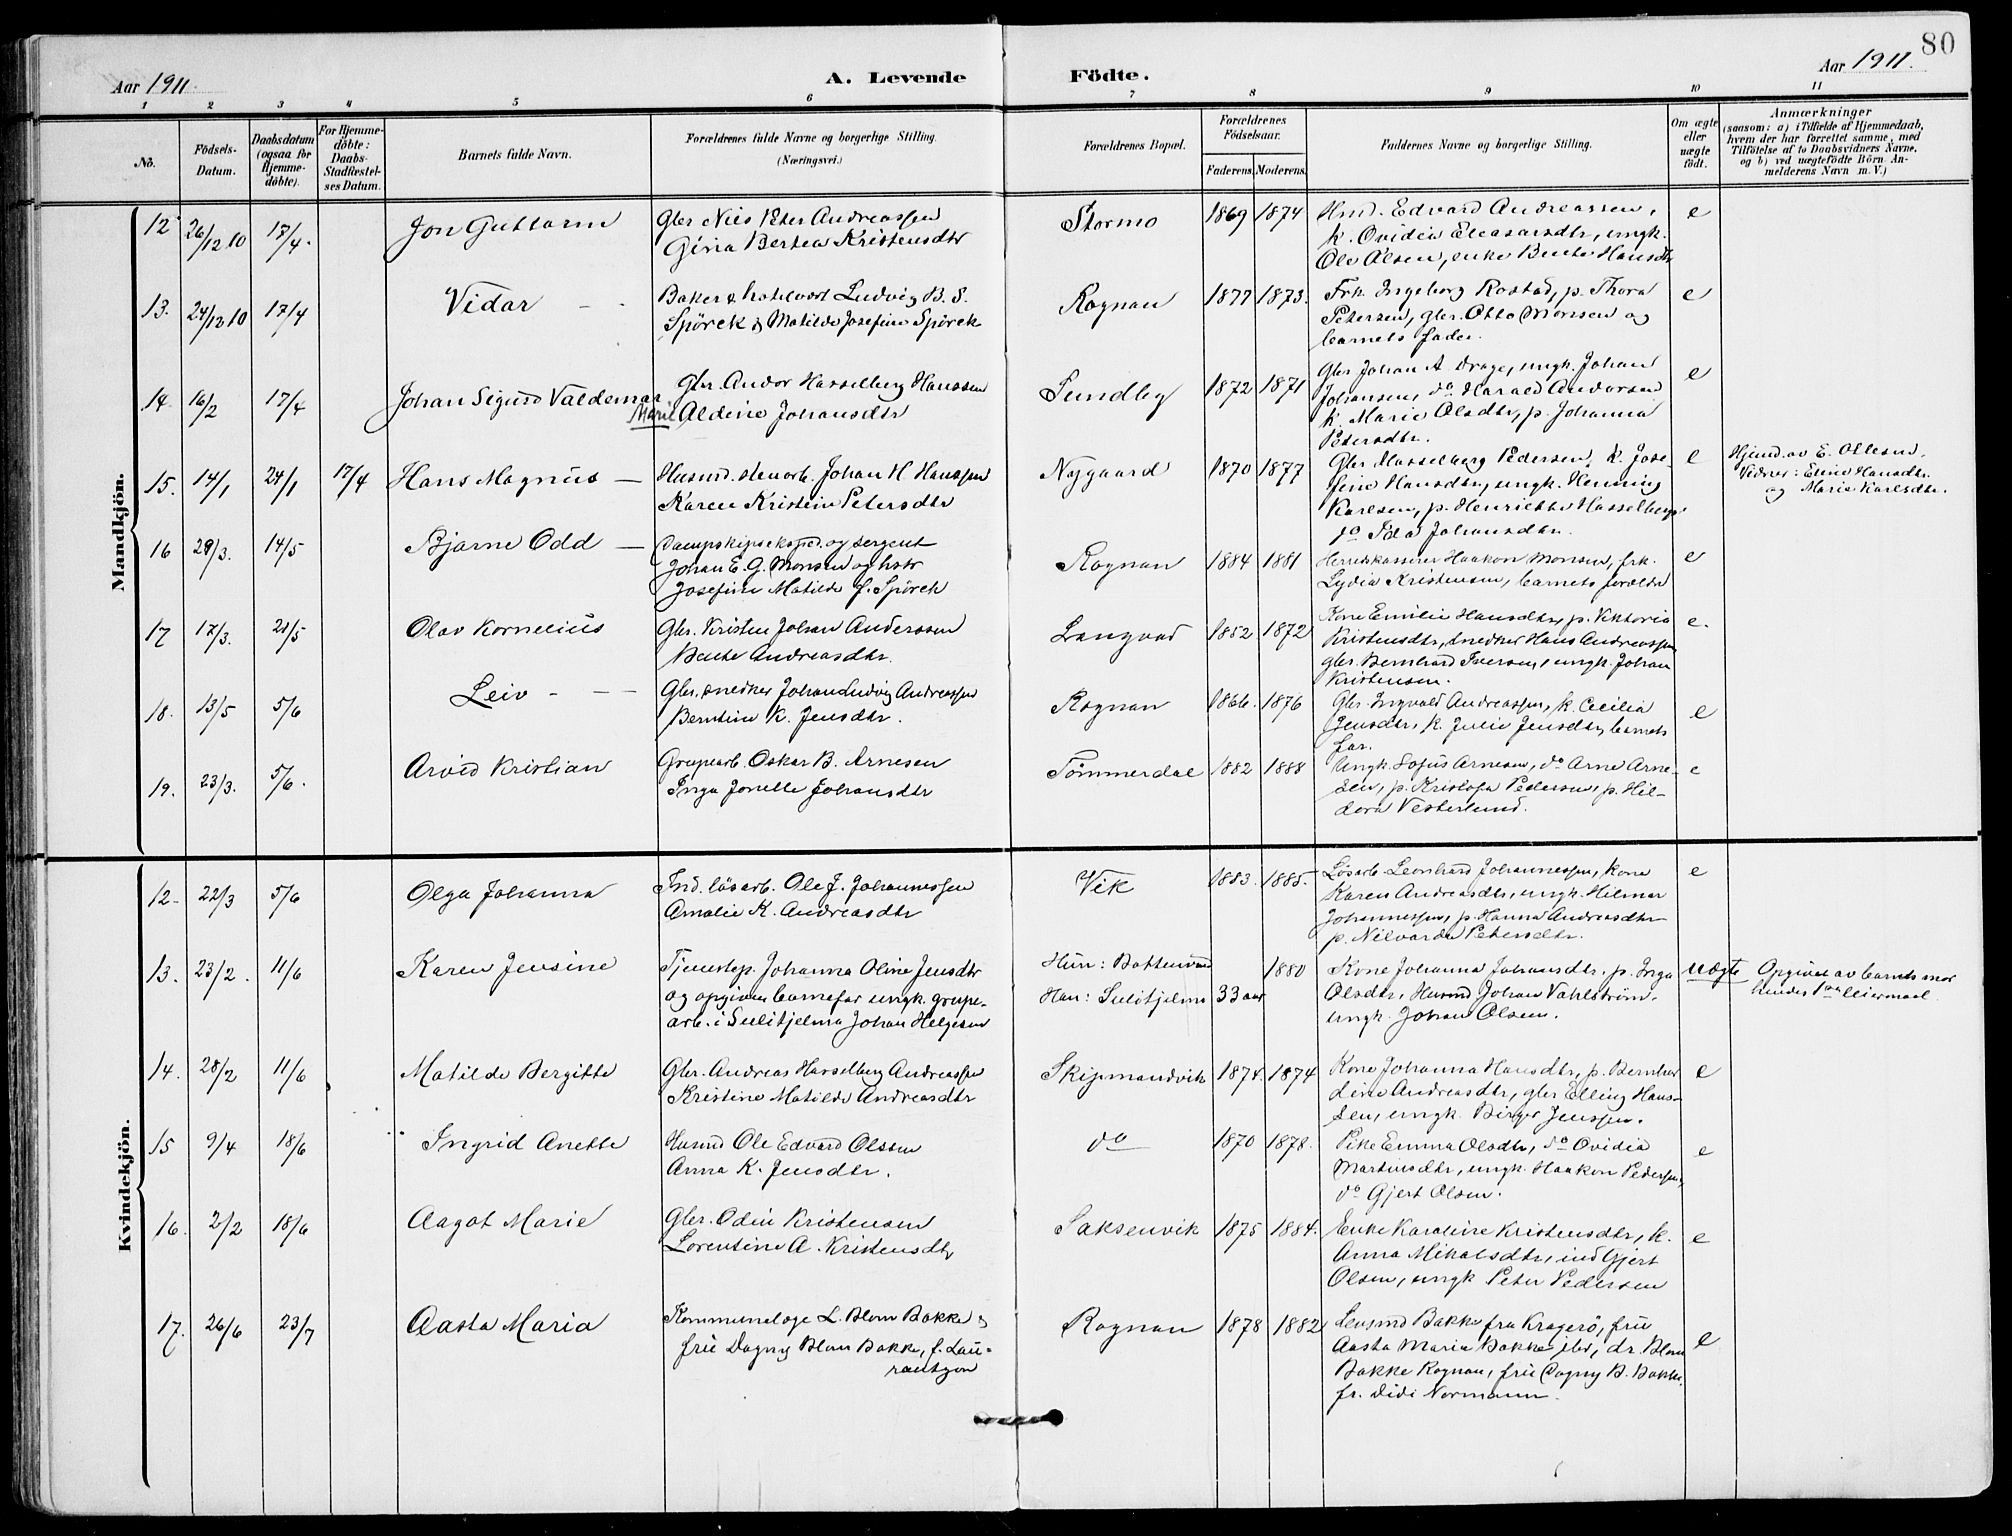 80
Aar 1911.
A. Levende Födte.
Aar 1911.
1 2 3 4 5 6 7 8 9 10 11
No.
Födsels-
Datum.
Daabsdatum
(ogsaa for
Hjemme-
döbte).
For Hjemme-
döbte:
Daabs-
Stadfæstel-
ses Datum.
Barnets fulde Navn.
Forældrenes fulde Navne og borgerlige Stilling.
(Næringsvei.)
Forældrenes Bopæl.
Forældrenes
Födselsaar.
Faderens. Moderens.
Faddernes Navne og borgerlige Stilling.
Om ægte
eller
uægte
födt.
Anmærkninger
(saasom: a) i Tilfælde af Hjemmedaab,
hvem der har forrettet samme, med
Tilföielse af to Daabsvidners Navne,
og b) ved uægtefödte Börn An-
melderens Navn m. V.)
Mandkjön.
12 26/12 10 17/4. Jon Guttorm
Gbr Nils Peter Andreassen
Gina Bertea Kristensdtr
Stormo 1869 1874
Hmd. Edvard Andreassen,
k. Ovidia Eleasarsdtr, ungk.
Ole Olsen, enke Bente Hansdtr
e
13. 24/12 10 17/4 Vidar
Baker & hotelvært Ludvig B. S.
Spörck & Matilde Josefine Spörck
Rognan 1877 1873.
Frk. Ingeborg Rostad, p. Thora
Petersen, gbr. Otto Monsen og
barnets fader.
e
14. 16/2 17/4 Johan Sigurd Valdemar
Gbr. Andor Hasselberg Hanssen
Marie Aldine Johansdtr
Sundby 1872 1871
Gbr Johan A Drage, ungk. Johan
Johansen, do Harald Andorsen
k. Marie Olsdtr, p. Johanna
Petersdtr.
e
15. 14/1 24/1 17/4 Hans Magnus
Husmd. stenarb. Johan H. Hanssen
Karen Kristine Petersdtr
Nygaard 1870 1877
Gbr Hasselberg Pedersen, k. Jose-
fine Hansdtr, ungk. Henning
Karlsen, p. Henriette Hasselberg
do Ida Johansdtr.
e
Hjemd. av E. Ottesen.
Vidner: Eline Hansdtr.
og Marie Karlsdtr.
16 28/3. 14/5 Bjarne Odd
Dampskipseksped. og sergent
Johan E. G. Monsen og hstr
Josefine Matilde f. Spörck
Rognan 1884 1881
Herredskasserer Haakon Monsen, frk.
Lydia Kristensen, barnets forældre
e
17 17/3. 21/5 Olav Kornelius
Gbr. Kristen Johan Anderssen
Bente Andreasdtr.
Langvad 1852 1872
Kone Emilie Hansdtr, p. Viktoria
Kristensdtr, snedker Hans Andreassen,
gbr. Bernhard Iversen, ungk. Johan
Kristensen.
e.
18. 13/5 5/6 Leiv
Gbr. snedker Johan Ludvig Andreassen
Berntine K. Jensdtr.
Rognan 1866. 1876
Gbr. Ingvald Andreassen, k. Cecilia
Jensdtr, k. Julie Jensdtr, barnets
far.
e
19. 23/3. 5/6. Arvid Kristian
Grupearb. Oskar B. Arnesen
Inga Jonette Johansdtr
Tömmerdal 1882 1888
Ungk. Sofus Arnesen, do Arne Arne-
sen, p. Kristofa Pedersen, p. Hil-
dora Vesterlund.
e
Kvindekjön.
12- 22/3 5/6 Olga Johanna
Ind. lösarb. Ole J. Johannessen
Amalie K. Andreasdtr
Vik 1883. 1885.
Lösarb Leonhard Johannessen, kone
Karen Andreasdtr, ungk. Hilmar
Johannessen, p. Hanna Andreasdtr
p. Nilvarda Petersdtr.
e
13. 23/2. 11/6 Karen Jensine
Tjenestep. Johanna Oline Jensdtr
og opgiven barnefar ungk. grupe-
arb. i Sulitjelma Johan Helgesen
Hun: Bottenvand
Han: Sulitjelma 33 aar 1880
Kone Johanna Johansdtr. p. Inga
Olsdtr, Husmd Johan Vahlström,
ungk. Johan Olsen.
uægte
Opgivet av barnets mor
hendes 1ste leiermaal
14. 28/2 11/6 Matilde Bergitte
Gbr. Andreas Hasselberg Andreassen
Kristine Matilde Andreasdtr
Skipmandvik 1874. 1874
Kone Johanna Hansdtr, p. Bernhar
dine Andreasdtr, gbr Elling Hans-
sen, ungk. Birger Jenssen.
e
15 9/4 18/6 Ingrid Anette
Husmd Ole Edvard Olssen
Anna K. Jensdtr.
do 1870 1878.
Pike Emma Olsdtr, do Ovidia
Martinsdtr, ungk. Haakon Pedersen,
do Gjert Olsen.
e
16. 2/2 18/6 Aagot Marie
Gbr. Odin Kristensen
Lorentine A. Kristensdtr
Saksenvik 1875 1884.
Enke Karoline Kristensdtr, k.
Anna Mikalsdtr, ind Gjert
Olsen, ungk Peter Pedersen
e
17. 26/6 23/7 Aasta Maria
Kommunelæge L. Blom Bakke &
frue Dagny Blom Bakke, f. Lau-
rantzon
Rognan 1878 1882
Lensmd Bakke fra Kragerö, frue
Aasta Maria Bakke ibd, dr. Blom
Bakke Rognan, frue Dagny B. Bakke,
fr. Didi Normann.
e